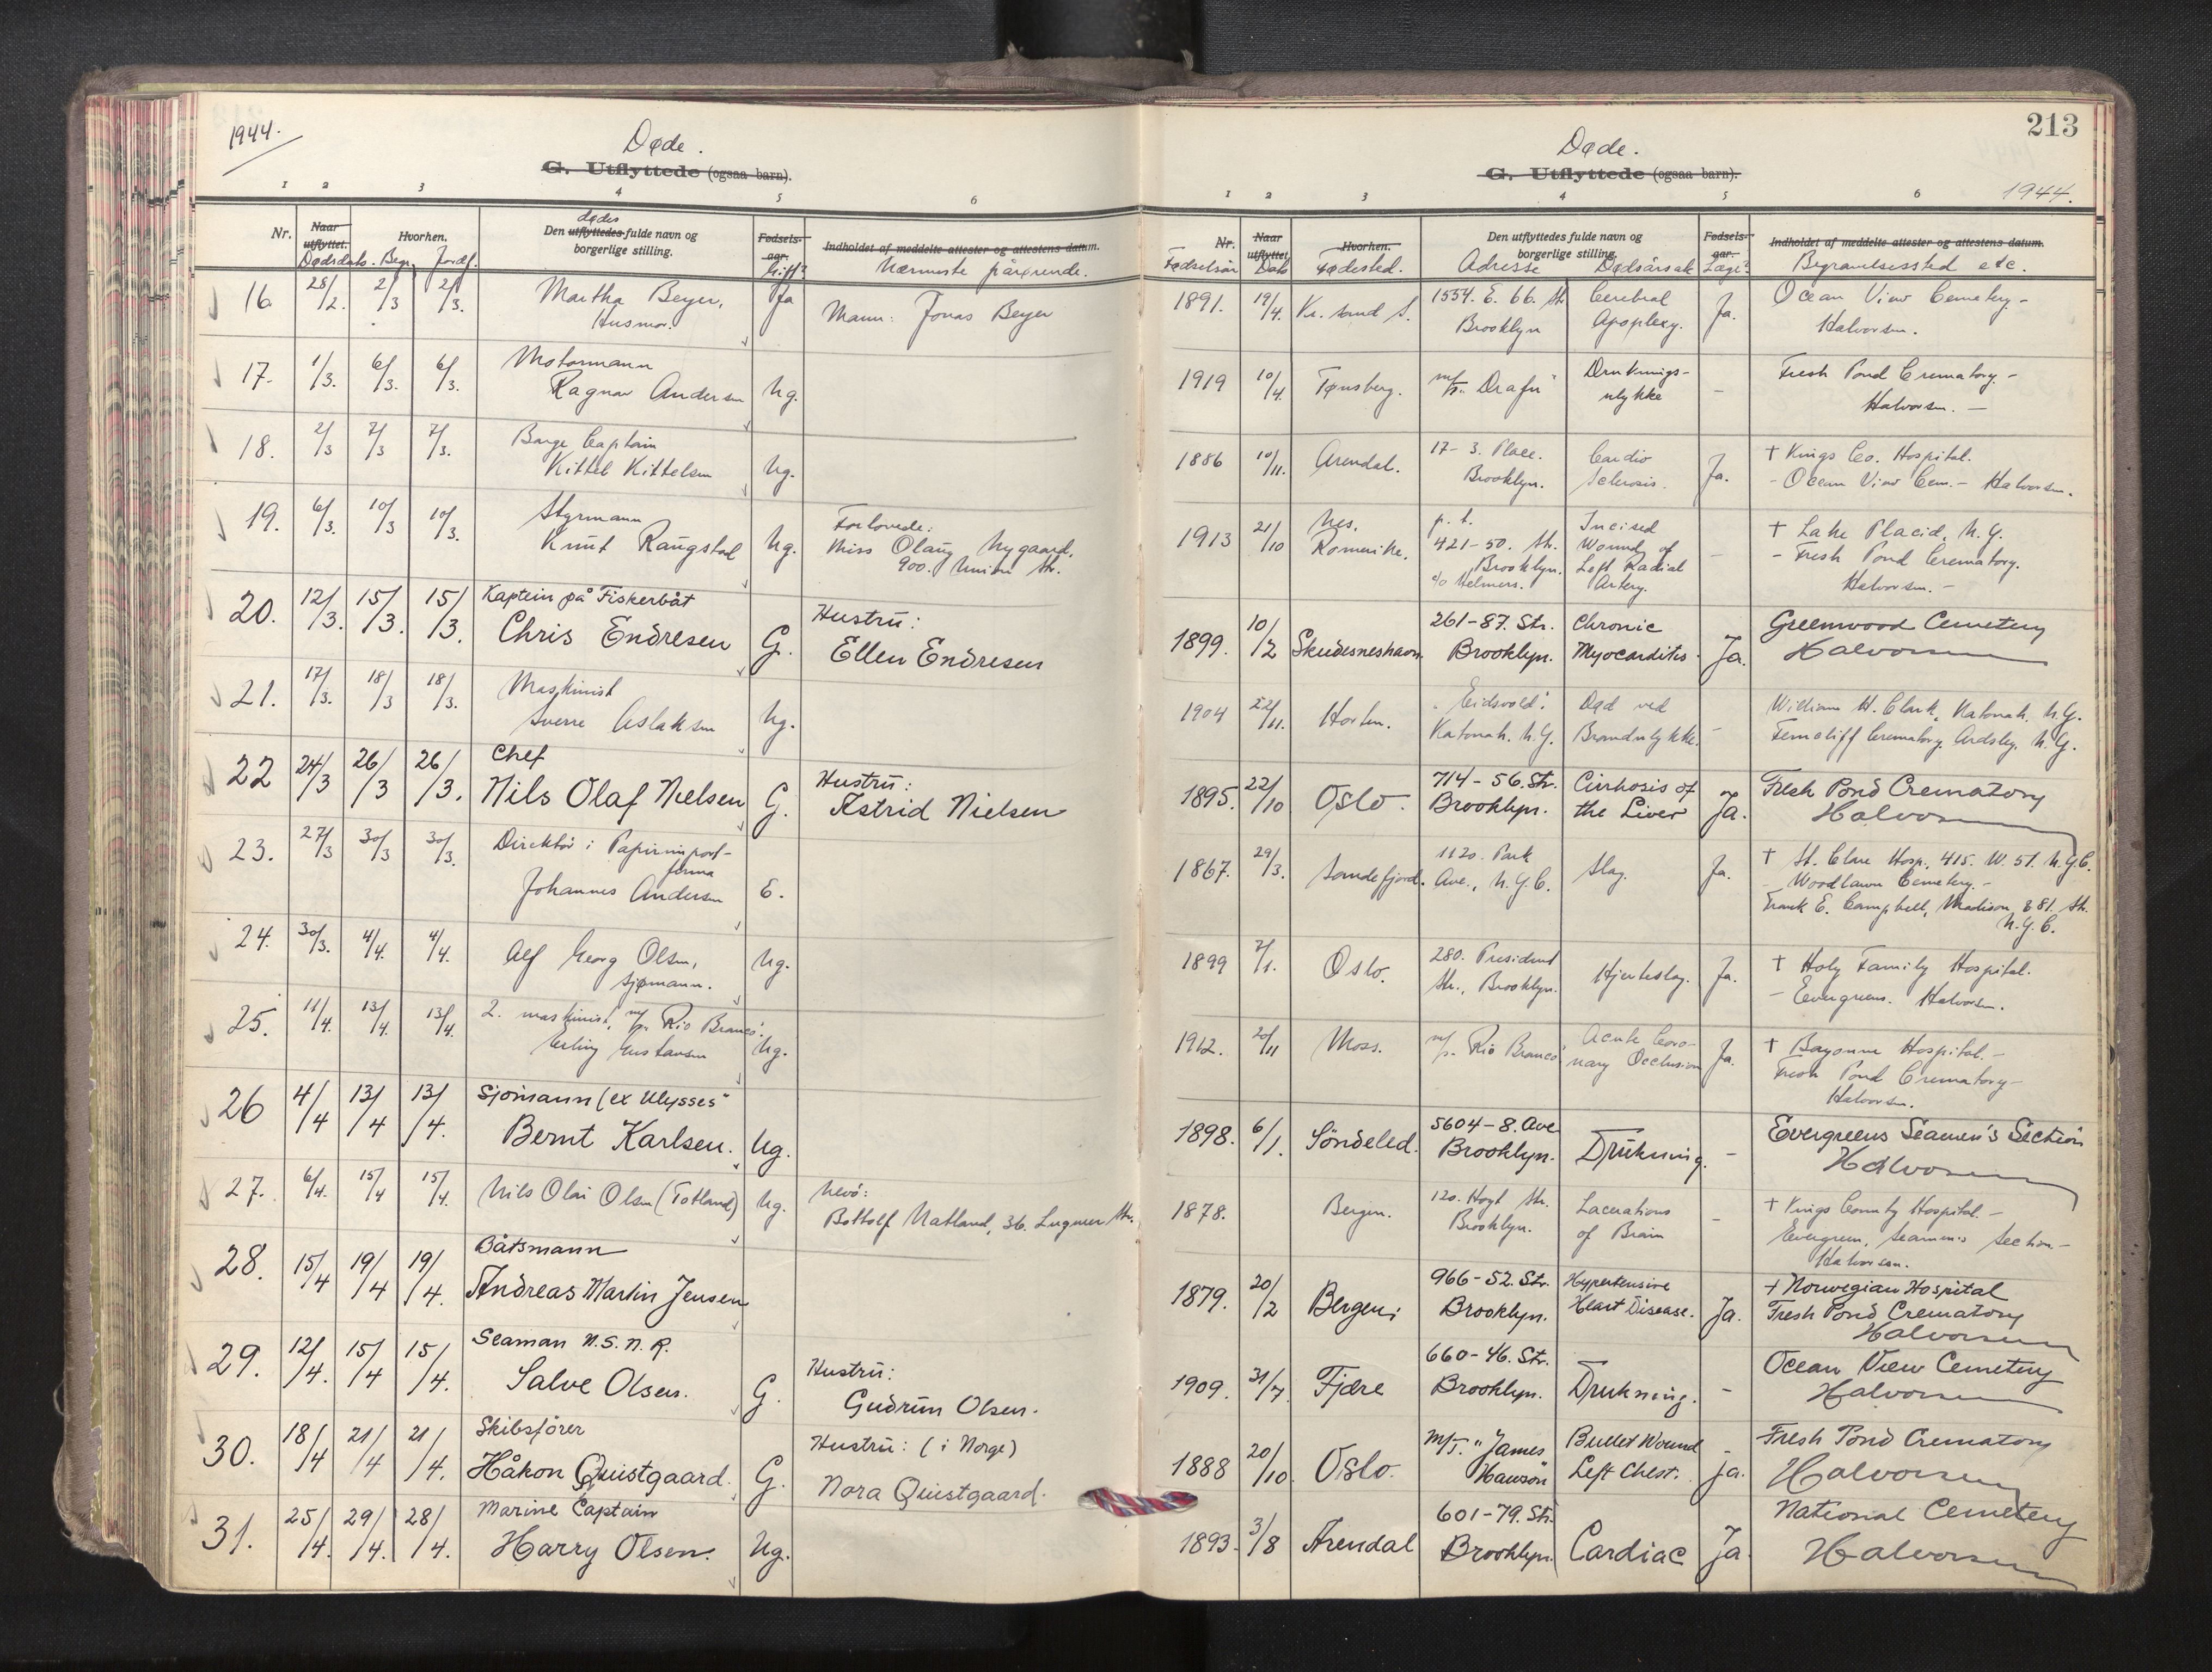 1944.
Døde.
G. Utflyttede (ogsaa barn).
1 2 3 4 5 6
Nr. Naar utflyttet. Hvorhen. Den utflyttedes fulde navn og borgerlige stilling. Fødsels-aar. Indholdet af meddelte attester og attestens datum.
Dødsdato. Begr. Jordf. dødes Gift? Nærmeste pårørende.
16 28/2. 2/3 2/3. Martha Beyer, Ja Mann: Jonas Beyer
Husmor.
17. 1/3. 6/3. 6/3. Motormann
Ragnar Andersen Ug.
18. 2/3 7/3 7/3. Barge Captain
Kittel Kittelsen Ug.
19. 6/3. 10/3 10/3. Styrmann Forlovede:
Knut Raugstad Ug. Miss Olaug Nygaard,
900. Union Str.
20. 12/3. 15/3. 15/3. Kaptein på Fiskerbåt Hustru:
Chris Endresen G. Ellen Endresen
21. 17/3. 18/3 18/3. Maskinist
Sverre Aslaksen Ug.
22 24/3 26/3 26/3. Chef Hustru:
Nils Olaf Nielsen G. Astrid Nielsen
23. 27/3 30/3 30/3. Direktør i Papirimport-
firma
Johannes Andersen E.
24. 30/3. 4/4. 4/4. Alf Georg Olsen, Ug.
sjømann.
25. 11/4. 13/4. 13/4. 2. maskinist, m/s "Rio Branco".
Erling Gustavsen Ug.
26 4/4 13/4 13/4. Sjömann (ex Ulysses"
Bernt Karlsen. Ug.
27. 6/4. 15/4 15/4. Nils Olai Olsen (Totland) Ug. Nevø:
Bottolf Natland, 36. Luquer Str.
28. 15/4 19/4 19/4. Båtsmann
Andreas Martin Jensen
29. 12/4. 15/4 15/4. Seaman N.S.N.R. Hustru:
Salve Olsen. G. Gudrun Olsen.
30. 18/4 21/4 21/4. Skibsförer Hustru: (i Norge)
Håkon Quistgaard. G. Nora Quistgaard.
31. 25/4. 29/4. 28/4. Marine Captain
Harry Olsen. Ug.
213
Døde.
G. Utflyttede (ogsaa barn).
1944.
1 2 3 4 5 6
Nr. Naar utflyttet. Hvorhen. Den utflyttedes fulde navn og borgerlige stilling. Fødsels-aar. Indholdet af meddelte attester og attestens datum.
Fødselsår Dato Fødested. Adresse Dødsårsak Læge? Begravelsessted etc.
1891. 19/4. Kr. sand S. 1554. E. 66. St. Cerebral Ja. Ocean View Cemetery -
Brooklyn Apoplexy. Halvorsen.
1919 10/4. Tønsberg. m/t. "Drafn" Druknings- - Fresh Pond Crematory. -
ulykke Halvorsen. -
1886 10/11. Arendal. 17 - 3. Place. Cardio Ja. † Kings Co. Hospital.
Brooklyn. Sclerosis. - Ocean View Cem. - Halvorsen.
1913 21/10 Nes. p. t. Incised † Lake Placid, N.Y.
Romerike. 421-50. Str. Wound of - - Fresh Pond Crematory.
Brooklyn. Left Radial Halvorsen. -
c/o Helmers. Artery.
1899. 10/2 Skudesneshavn. 261-87. Str. Chronic Ja. Greenwood Cemetery
Brooklyn. Myocarditis. Halvorsen
1904 22/11. Horten. "Eidsvold". Død ved - William H. Clark, Katonah, N.Y.
Katonah. N.Y. Brandulykke. Ferncliff Crematory, Ardsley, N.Y.
1895. 22/10 Oslo. 714-56. Str. Cirrhosis of Ja. Fresh Pond Crematory
Brooklyn. the Liver Halvorsen
1867. 29/3. Sandefjord. 1120. Park Slag. Ja. † St. Clare Hosp., 415. W. 51. N.Y.C.
Ave., N.Y.C. - Woodlawn Cemetery. -
Frank E. Campbell, Madison & 81. Str.
N.Y.C.
1899 7/1. Oslo. 280. President Hjerteslag. Ja. † Holy Family Hospital.
Str., Brooklyn. - Evergreens. Halvorsen.
1912. 20/11 Moss. m/s. "Rio Branco" Acute Coro- Ja. † Bayonne Hospital. -
nary Occlusion Fresh Pond Crematory -
Halvorsen.
1898. 6/1. Söndeled. 5604-8. Ave Evergreens Seamen's Section
Brooklyn. Drukning. - Halvorsen
1878. Bergen. 120. Hoyt Str. Lacerations - † Kings County Hospital. -
Brooklyn. of Brain Evergreen, Seamens Section -
Halvorsen.
1879. 20/2 Bergen. 966-52. Str. Hypertensive † Norwegian Hospital
Brooklyn. Heart Disease. Ja. Fresh Pond Crematory
Halvorsen
1909. 31/7 Fjære 660-46. Str. Ocean View Cemetery
Brooklyn. Drukning. - Halvorsen
1888 20/10. Oslo. M/T. "James Bullet Wound Fresh Pond Crematory
Hawson" Left Chest. Ja. Halvorsen
1893. 3/8 Arendal 601-79. Str. National Cemetery
Brooklyn. Cardiac Ja. Halvorsen